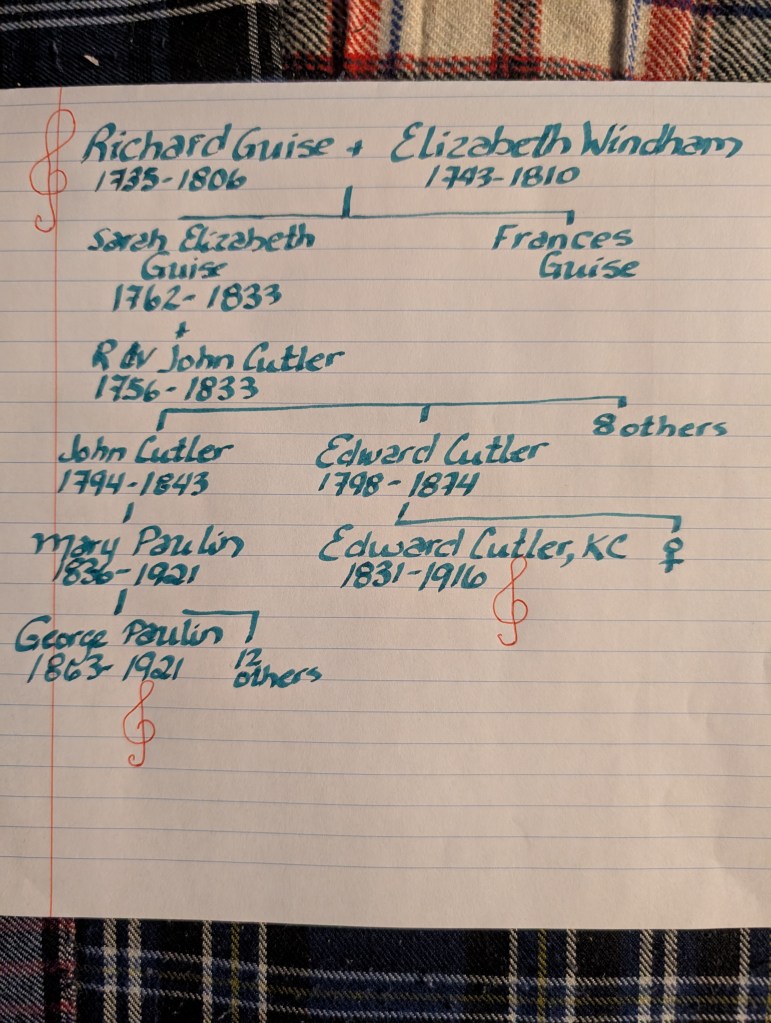 Richard Guise + Elizabeth Windham
1735-1806 1743-1810
Sarah Elizabeth Frances
Guise Guise
1762-1833
+
Rev John Cutler
1756-1833
8 others
John Cutler Edward Cutler
1794-1843 1798-1874
Mary Paulin Edward Cutler, KC ♀
1836-1921 1831-1916
George Paulin
1863-1921 12
others